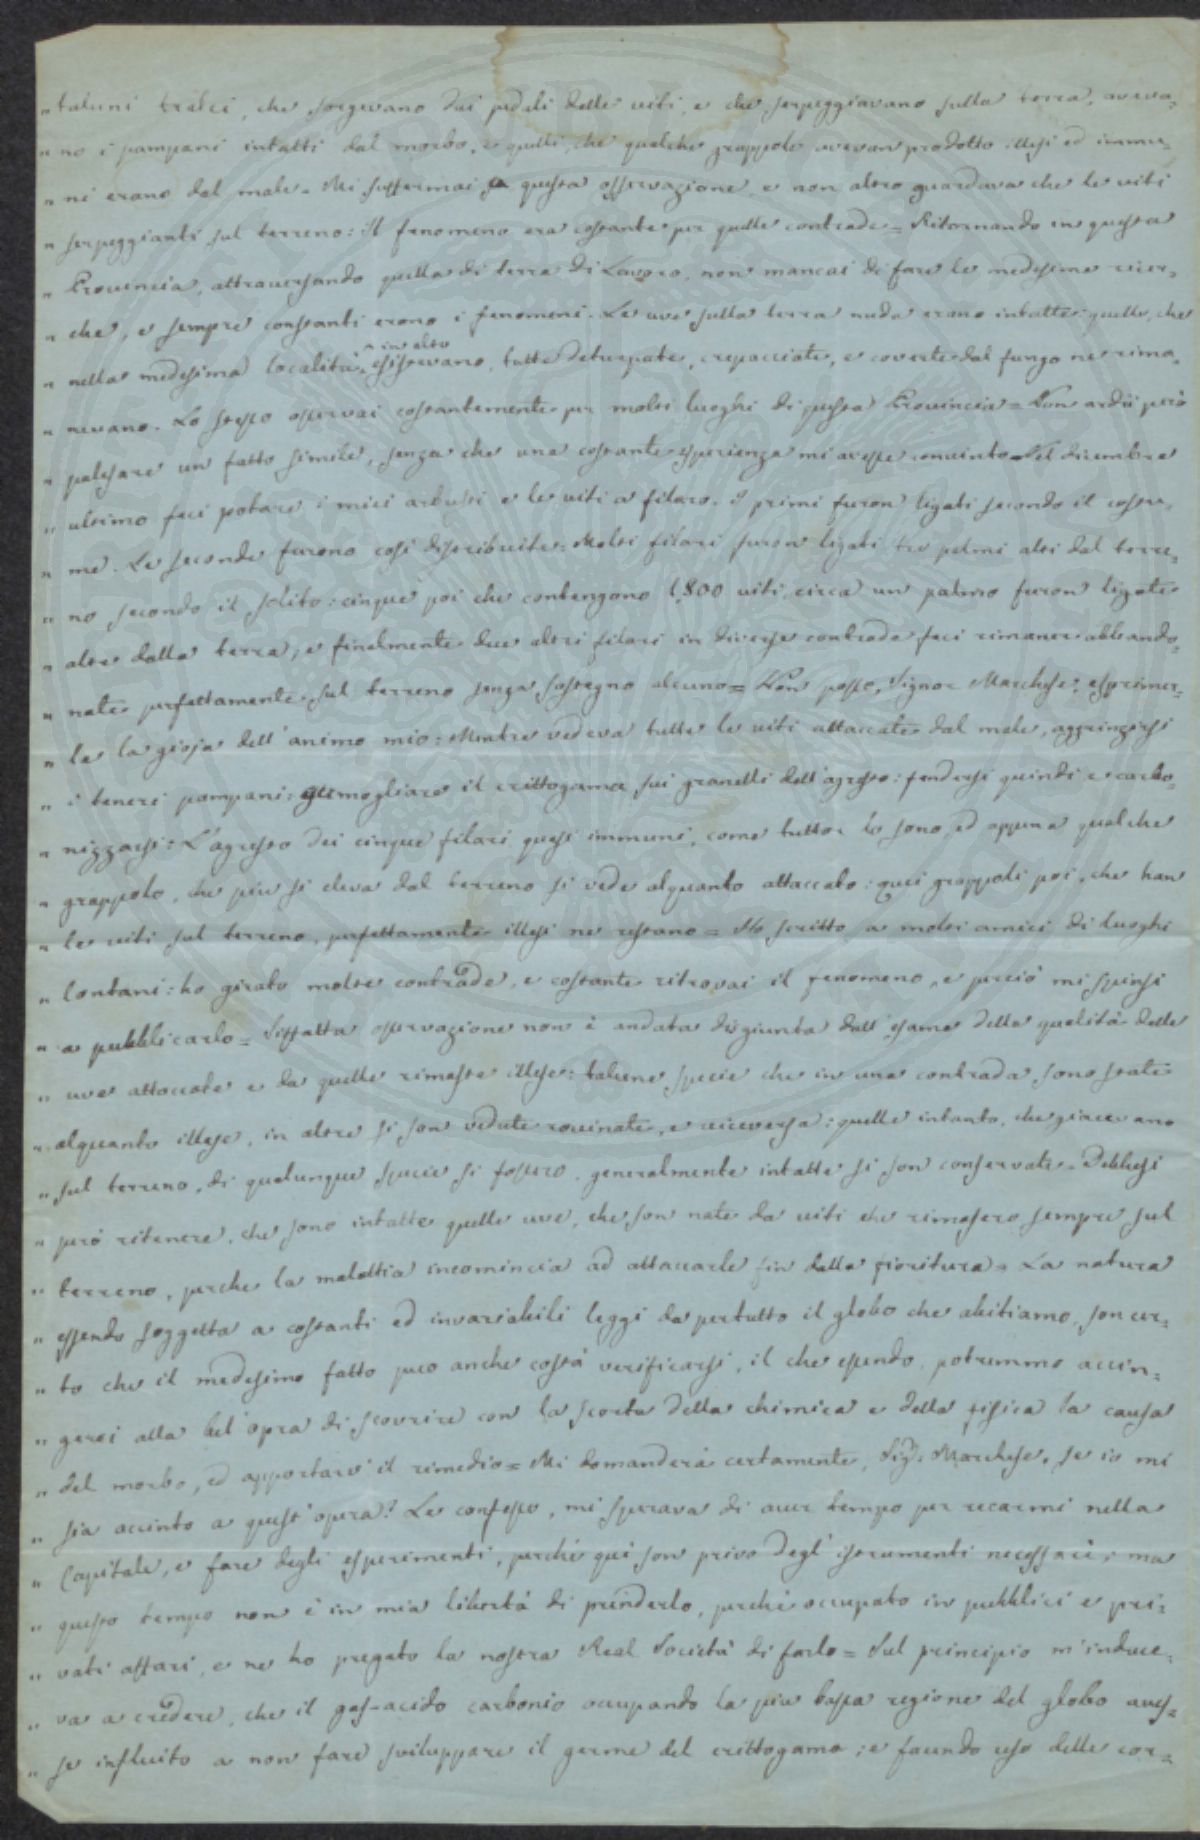 „ taluni tralci, che sorgevano dai pedali delle viti, e che serpeggiavano sulla terra, aveva=
„ no i pampani intatti dal morbo, e quelli, che qualche grappolo avevan prodotto illesi ed immu=
„ ni erano dal male. Mi soffermai a questa osservazione, e non altro guardava che le viti
„ serpeggianti sul terreno: il fenomeno era costante per quelle contrade = Ritornando in questa
„ Provincia, attraversando quella di terra di Lavoro, non mancai di fare le medesime ricer=
„ che, e sempre constanti erono i fenomeni. Le uve sulla terra nuda erano intatte: quelle, che
„ nella medesima località, in alto esistevano, tutte deturpate, crepacciate, e coverte dal fungo ne rima=
„ nevano. Lo stesso osservai costantemente per molti luoghi di questa Provincia = Non ardii però
„ palesare un fatto simile, senza che una costante esperienza mi avesse convinto = Nel dicembre
„ ultimo feci potare i miei arbusti e le viti a filaro. I primi furon ligati secondo il costu=
„ me. Le seconde furono così distribuite: Molti filari furon ligati tre palmi alti dal terre=
„ no secondo il solito: cinque poi che contengono 1,800 viti circa un palmo furon ligate
„ alte dalla terra; e finalmente due altri filari in diverse contrade feci rimaner abbando=
„ nate perfettamente sul terreno senza sostegno alcuno = Non posso, Signor Marchese, esprimer=
„ le la gioja dell'animo mio: Mentre vedeva tutte le viti attaccate dal male, aggrinzirsi
„ i teneri pampani: germogliare il crittogama sui granelli dell'agresto: fendersi quindi e carbo=
„ nizzarsi: L'agresto dei cinque filari quasi immuni, come tuttor lo sono, ed appena qualche
„ grappolo, che più si eleva dal terreno si vede alquanto attaccato: quei grappoli poi, che han
„ le viti sul terreno, perfettamente illesi ne restano = Ho scritto a molti amici di luoghi
„ lontani: ho girato molte contrade, e costante ritrovai il fenomeno, e perciò mi spinsi
„ a pubblicarlo = Siffatta osservazione non è andata disgiunta dall'esame della qualità delle
„ uve attaccate e da quelle rimaste illese: talune specie che in una contrada sono state
„ alquanto illese, in altre si son vedute rovinate, e viceversa: quelle intanto, che giacevano
„ sul terreno, di qualunque specie si fossero, generalmente intatte si son conservate. Debbesi
„ però ritenere, che sono intatte quelle uve, che son nate da viti che rimasero sempre sul
„ terreno, perché la malattia incomincia ad attaccarle fin dalla fioritura = La natura
„ essendo soggetta a costanti ed invariabili leggi da pertutto il globo che abitiamo, son cer=
„ to che il medesimo fatto puro anche costà verificarsi, il che essendo, potremmo accin=
„ gerci alla bell'opra di scovrire con la scorta della chimica e della fisica la causa
„ del morbo, ed apportarvi il rimedio = Mi domanderà certamente, Sig.r Marchese, se io mi
„ sia accinto a quest'opera? Le confesso, mi sperava di aver tempo per recarmi nella
„ Capitale, e fare degli esperimenti, perché qui son privo degl'istrumenti necessarii; ma
„ questo tempo non è in mia libertà di prenderlo, perché occupato in pubblici e pri=
„ vati affari, e ne ho pregato la nostra Real Società di farlo = Sul principio m'induce=
„ va a credere, che il gas-acido carbonio occupando la più bassa regione del globo aves=
„ se influito a non fare sviluppare il germe del crittogama; e facendo uso delle cor=